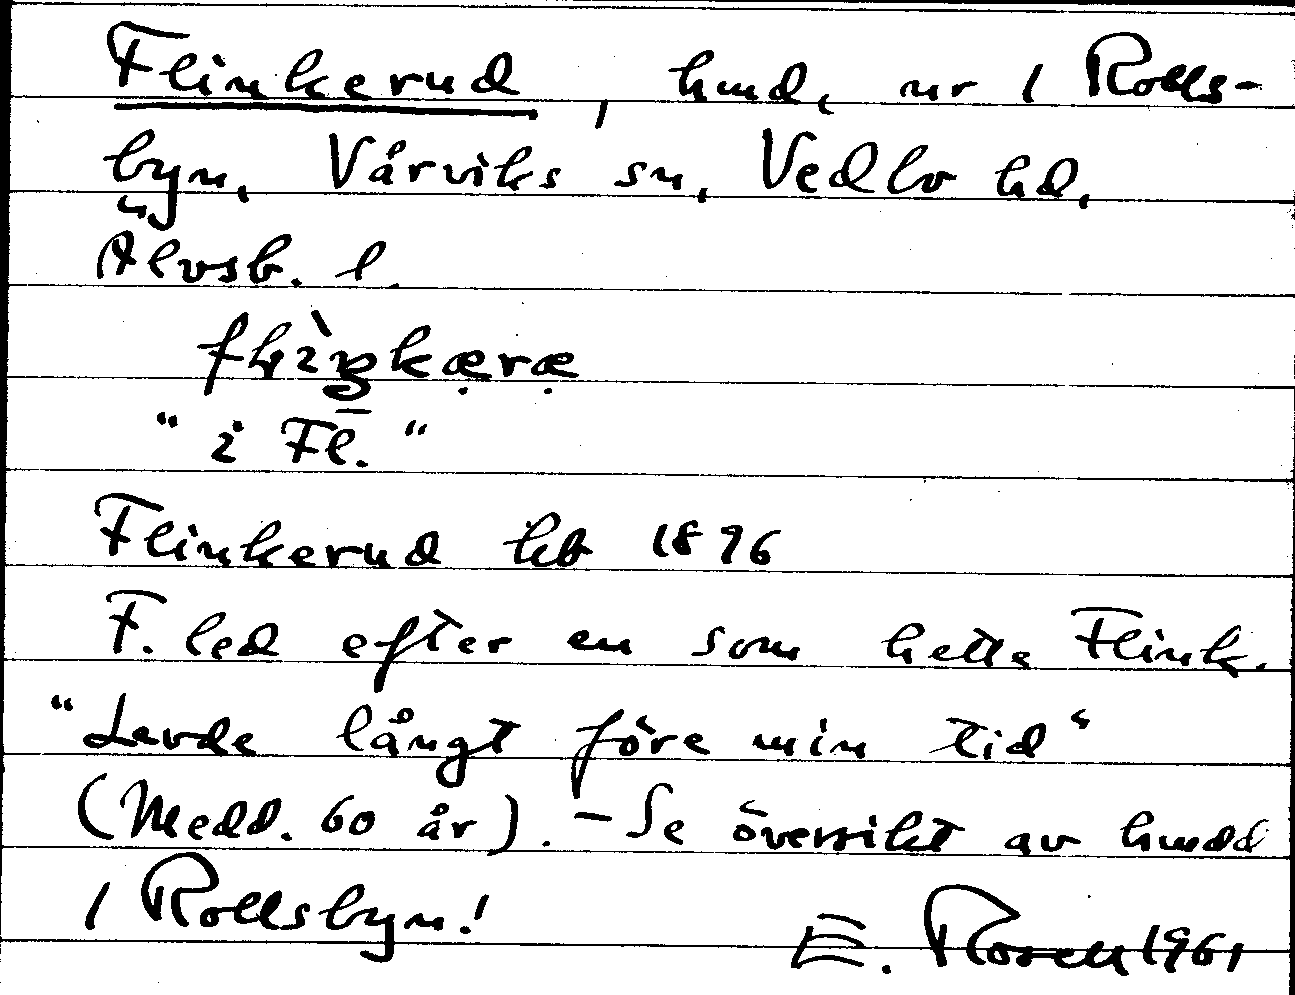 Flinkerud, hmd, ur 1 Rolls-
byn, Vårviks sn, Vedbo hd,
Älvsb. l.
flìŋkæræ
"i Fl."
Flinkerud kb 1896
F. led efter en som hette Flink.
"Levde långt före min tid"
(Medd. 60 år). - Se översikt av hmdd
1 Rollsbyn!
E. Rosell 1961